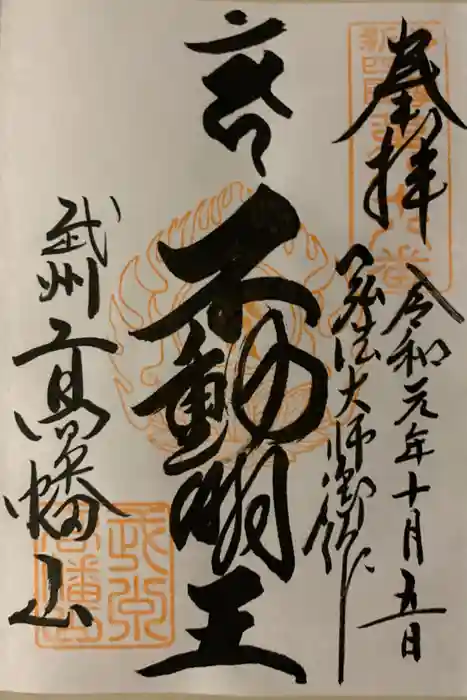 奉拝
令和元年十月五日
弘法大師御作
不動明王
武州
高幡山